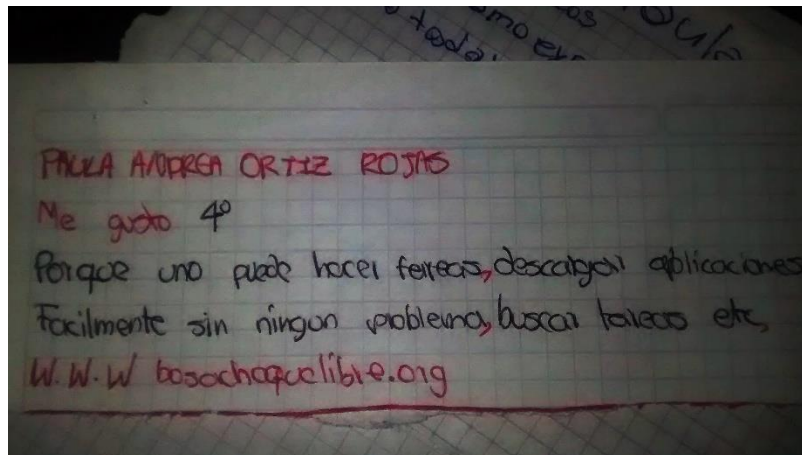 todo
omo ex
os
oula
PAULA ANDREA ORTIZ ROJAS
Me gusto 4º
Porque uno puede hacer tereas, descargar aplicaciones
Facilmente sin ningun problema, buscar tareas etc,
W.W.W bosachoquelibre.org